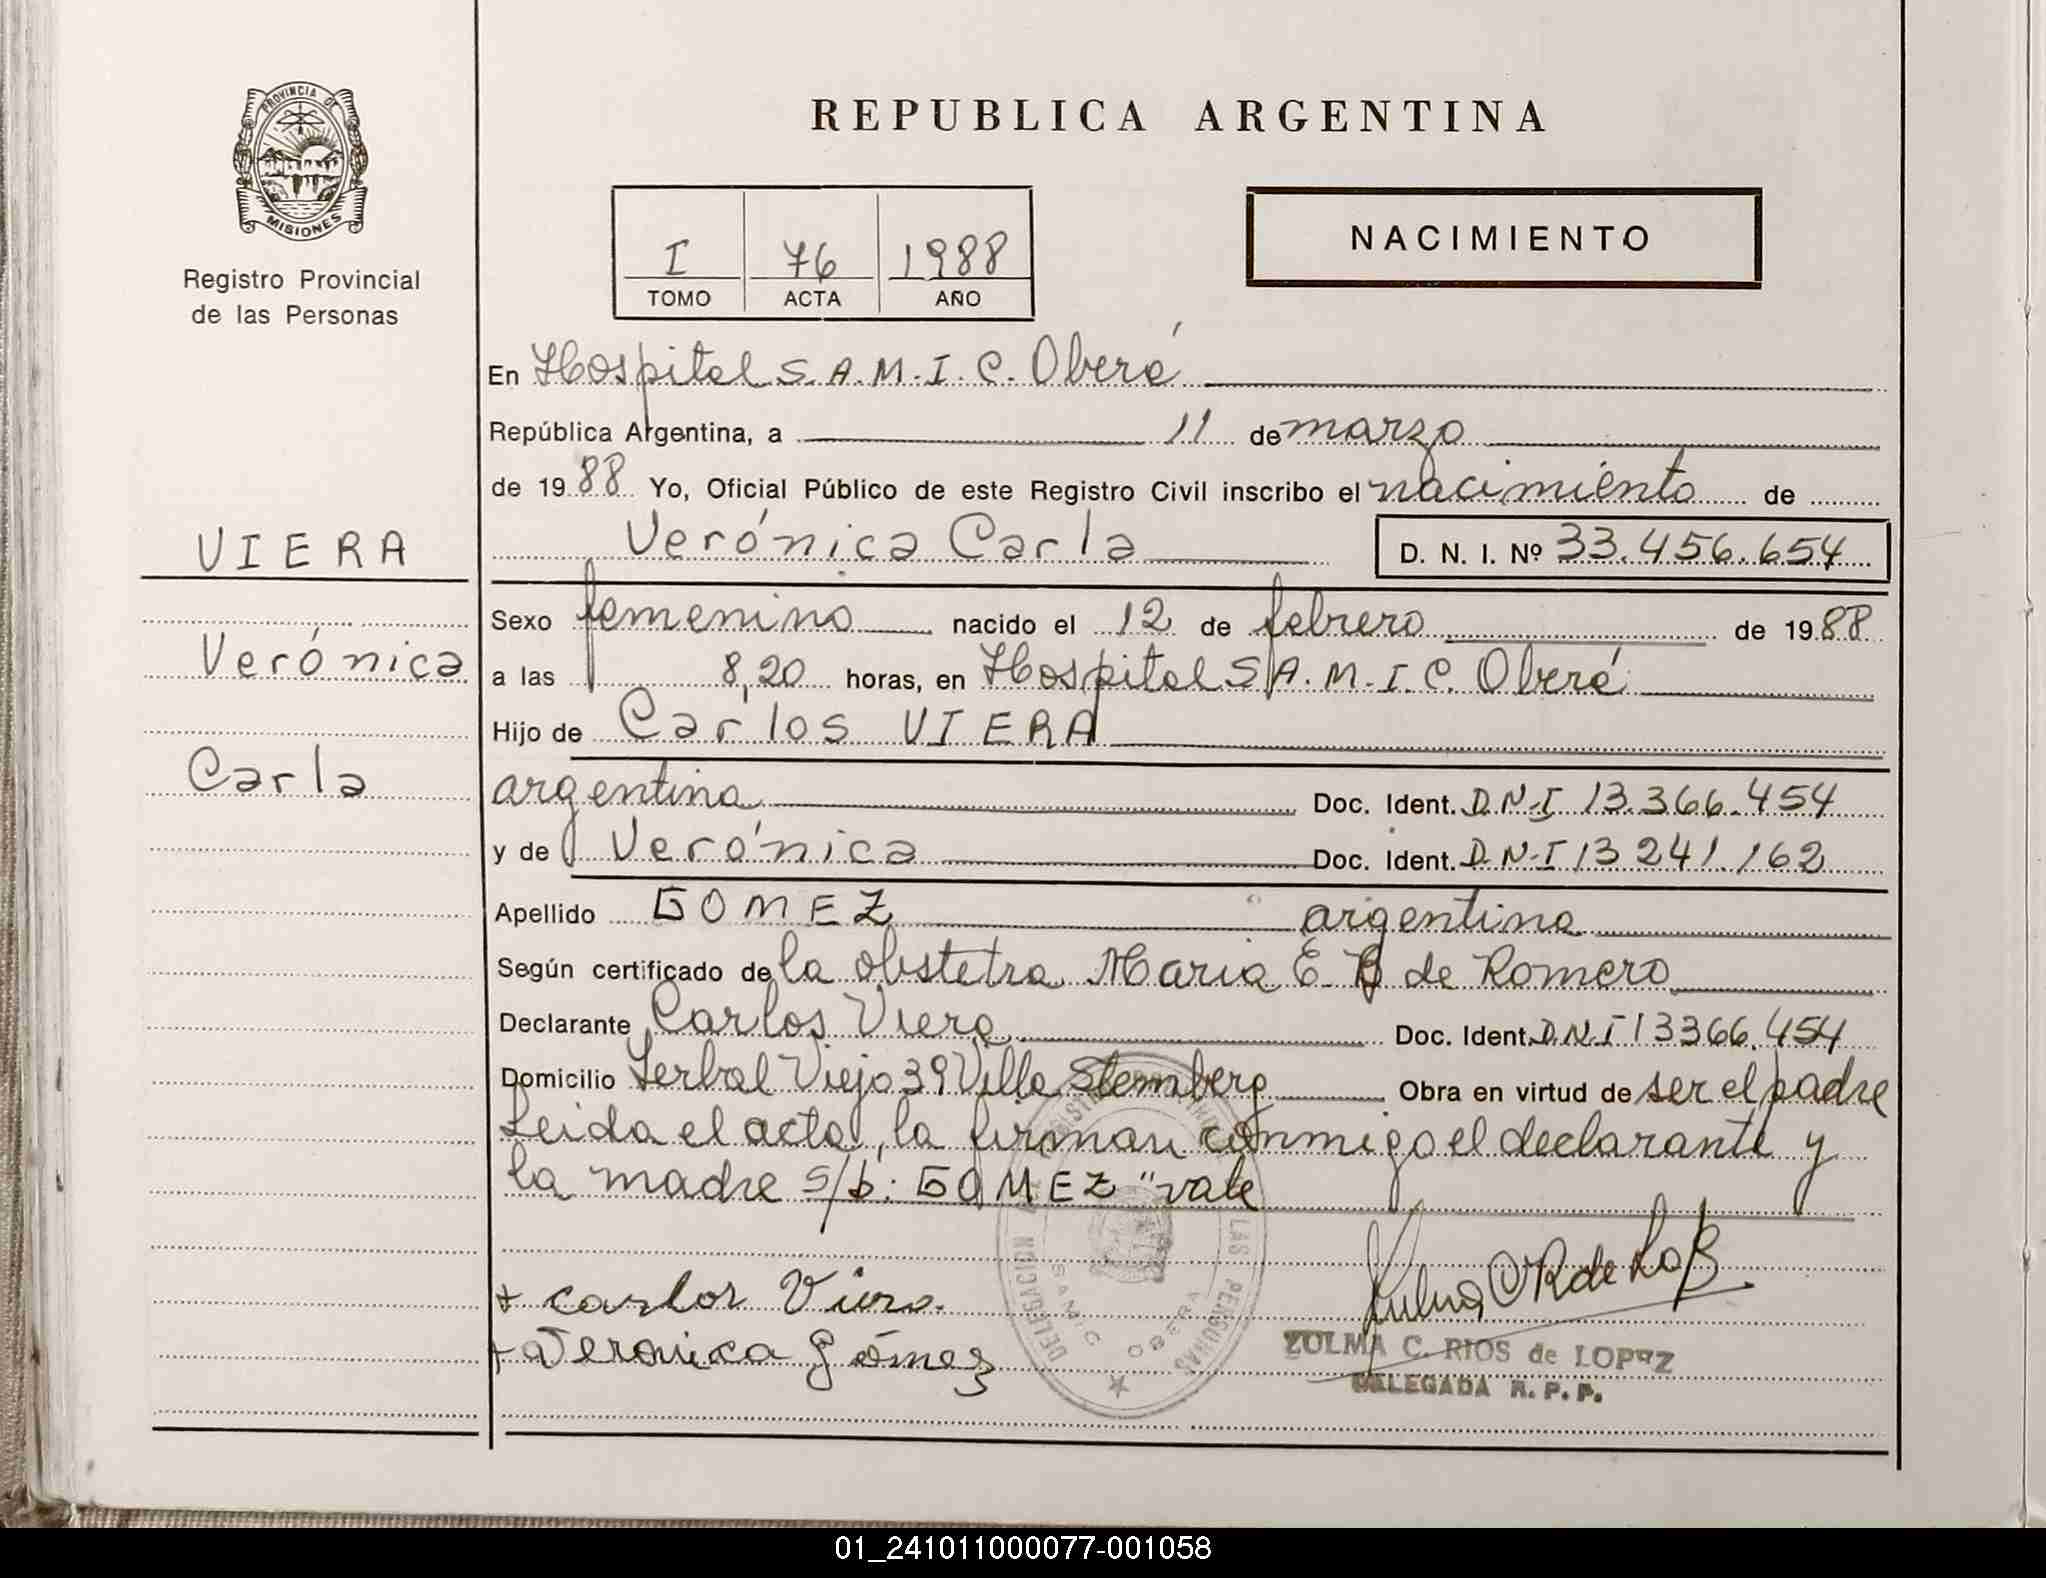 PROVINCIA DE
MISIONES
Registro Provincial
de las Personas
VIERA
Verónica
Carla
REPUBLICA ARGENTINA
I 76 1988
TOMO ACTA AÑO
NACIMIENTO
En Hospital S.A.M.I.C. Oberá
República Argentina, a 11 de marzo
de 1988 Yo, Oficial Público de este Registro Civil inscribo el nacimiento de
Verónica Carla D. N. I. Nº 33.456.654
Sexo femenino nacido el 12 de febrero de 1988
a las 8,20 horas, en Hospital S.A.M.I.C. Oberá
Hijo de Carlos VIERA
argentino Doc. Ident. D.N.I 13.366.454
y de Verónica Doc. Ident. D.N.I 13 241.162
Apellido GOMEZ argentina
Según certificado de la obstetra Maria E. B de Romero
Declarante Carlos Viera Doc. Ident. D.N.I 13366.454
Domicilio Yerbal Viejo 39 Villa Stemberg Obra en virtud de ser el padre
Leida el acta, la firman conmigo el declarante y
la madre s/b: GOMEZ "vale
+ Carlos Viera.
+ Veronica Gómez
DELEGACION LAS PERSONAS
SAMIC OBERA
ZULMA C. RIOS de LOPEZ
DELEGADA R. P. P.
01_241011000077-001058